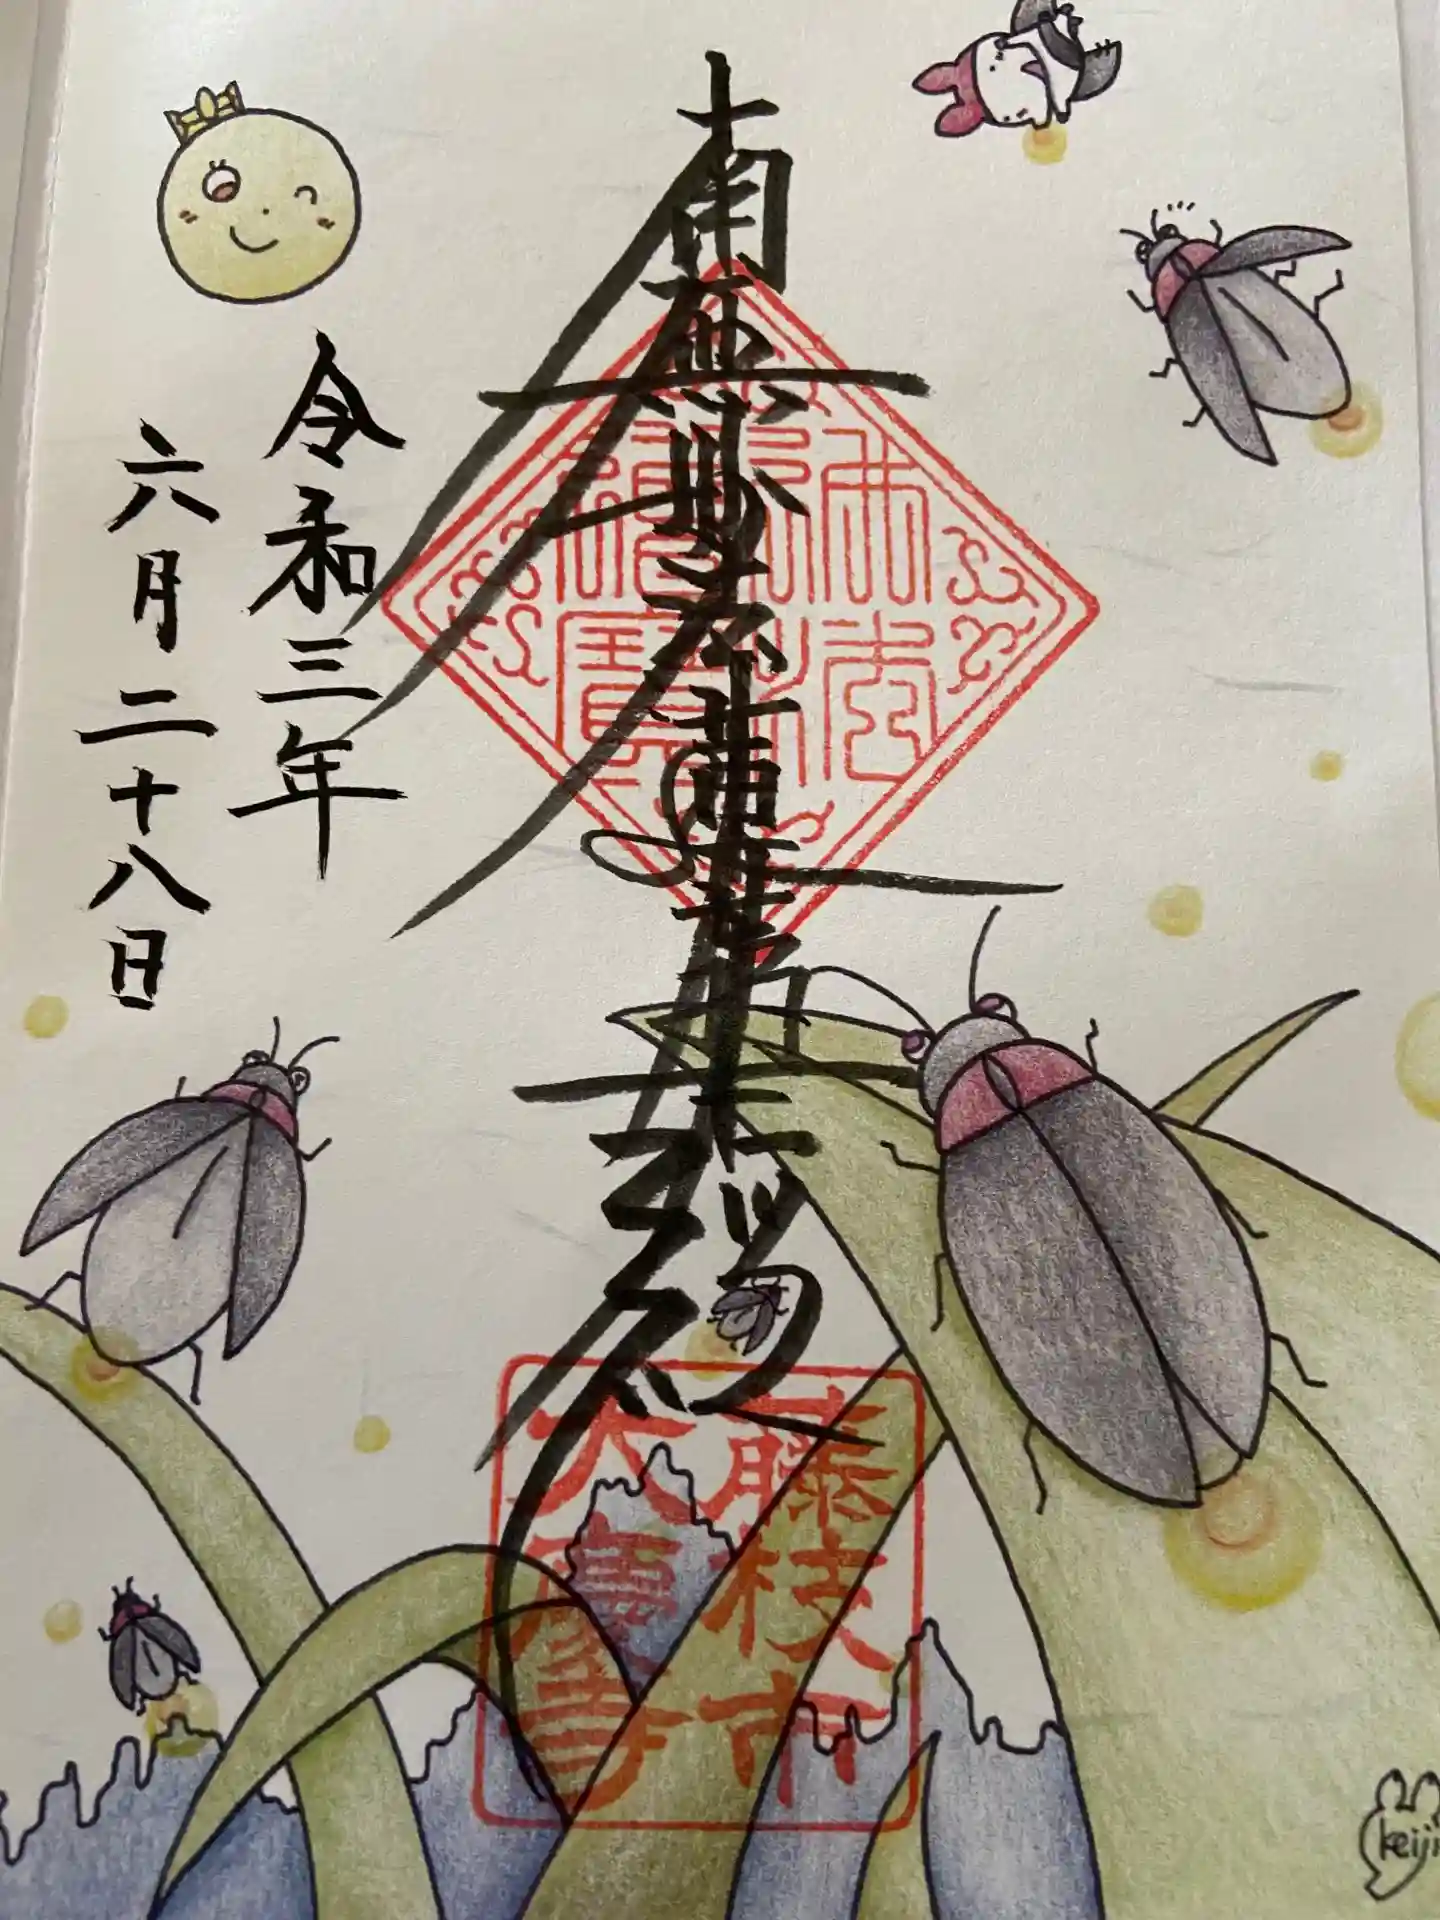 南無妙法蓮華経
令和三年
六月二十八日
藤枝市
大慶寺
keiji